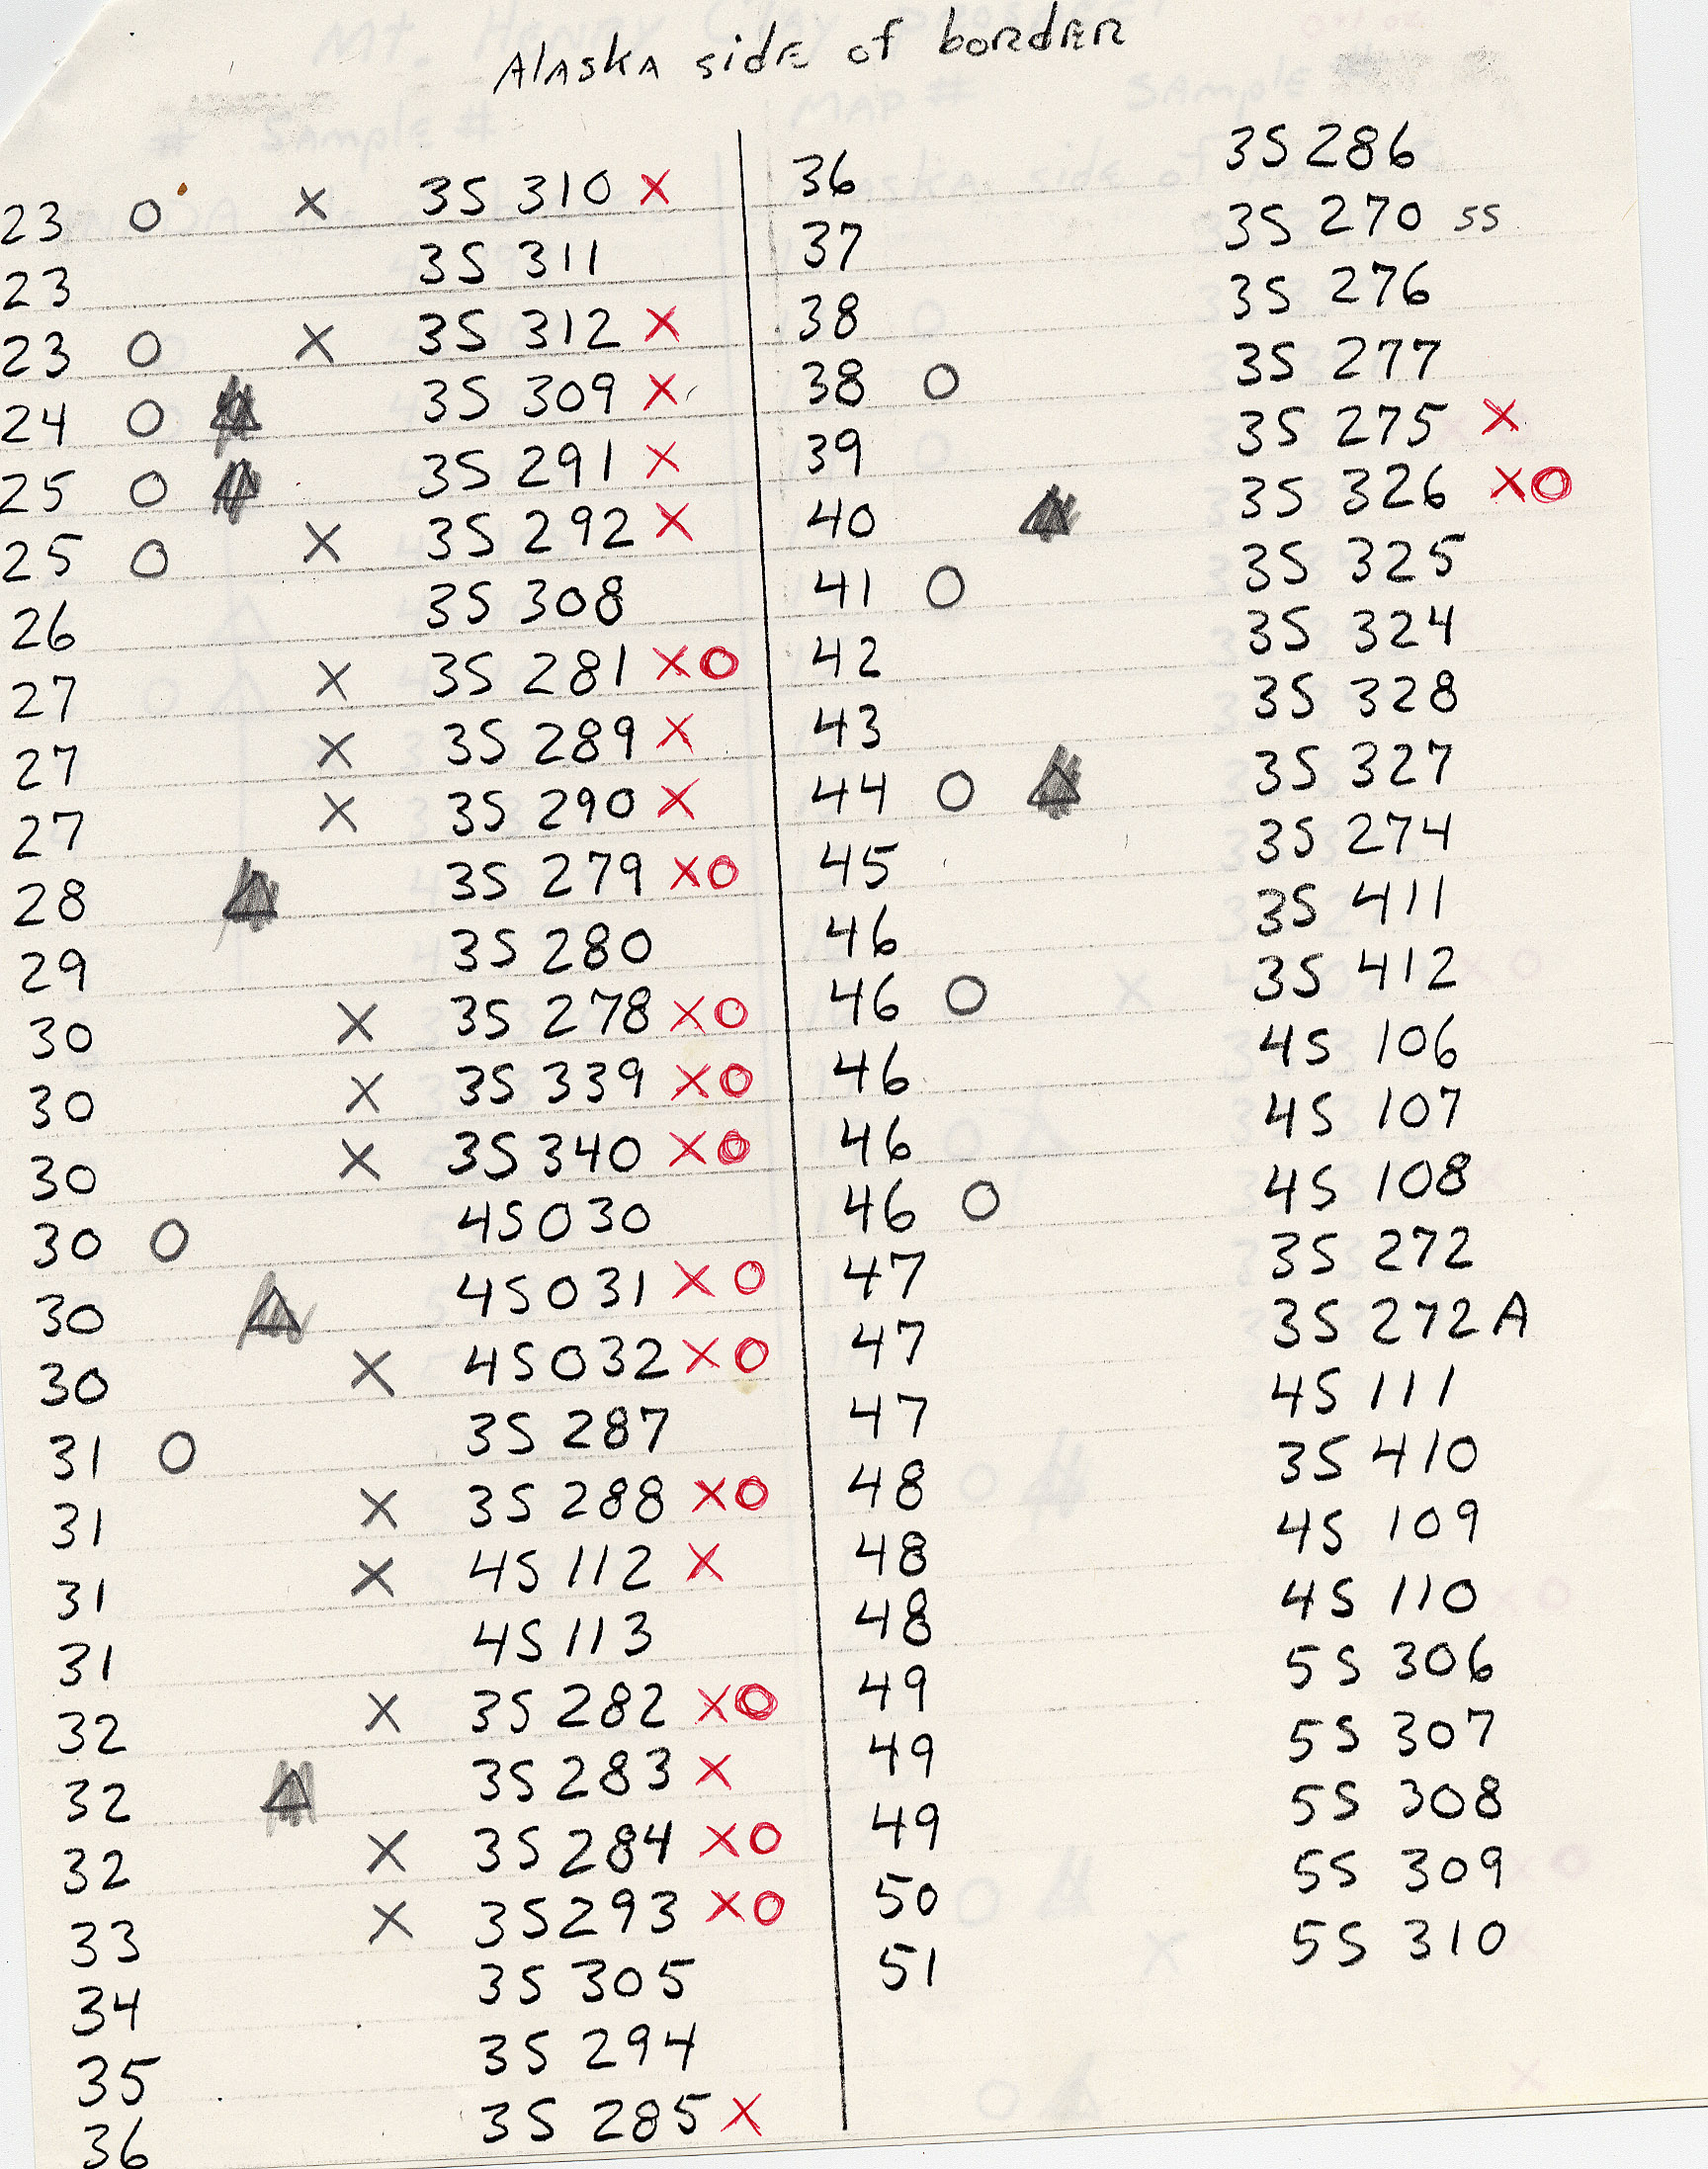 Alaska side of border
23 O X 3S 310 X
23 3S 311
23 O X 3S 312 X
24 O △ 3S 309 X
25 O △ 3S 291 X
25 O X 3S 292 X
26 3S 308
27 X 3S 281 XO
27 X 3S 289 X
27 X 3S 290 X
28 △ 3S 279 XO
29 3S 280
30 X 3S 278 XO
30 X 3S 339 XO
30 X 3S 340 XO
30 O 4S 030
30 △ 4S 031 XO
30 X 4S 032 XO
31 O 3S 287
31 X 3S 288 XO
31 X 4S 112 X
31 4S 113
32 X 3S 282 XO
32 △ 3S 283 X
32 X 3S 284 XO
33 X 3S 293 XO
34 3S 305
35 3S 294
36 3S 285 X
36 3S 286
37 3S 270 ss
38 3S 276
38 O 3S 277
39 3S 275 X
40 △ 3S 326 XO
41 O 3S 325
42 3S 324
43 3S 328
44 O △ 3S 327
45 3S 274
46 3S 411
46 O 3S 412
46 4S 106
46 4S 107
46 O 4S 108
47 3S 272
47 3S 272A
47 4S 111
48 3S 410
48 4S 109
48 4S 110
49 5S 306
49 5S 307
49 5S 308
50 5S 309
51 5S 310